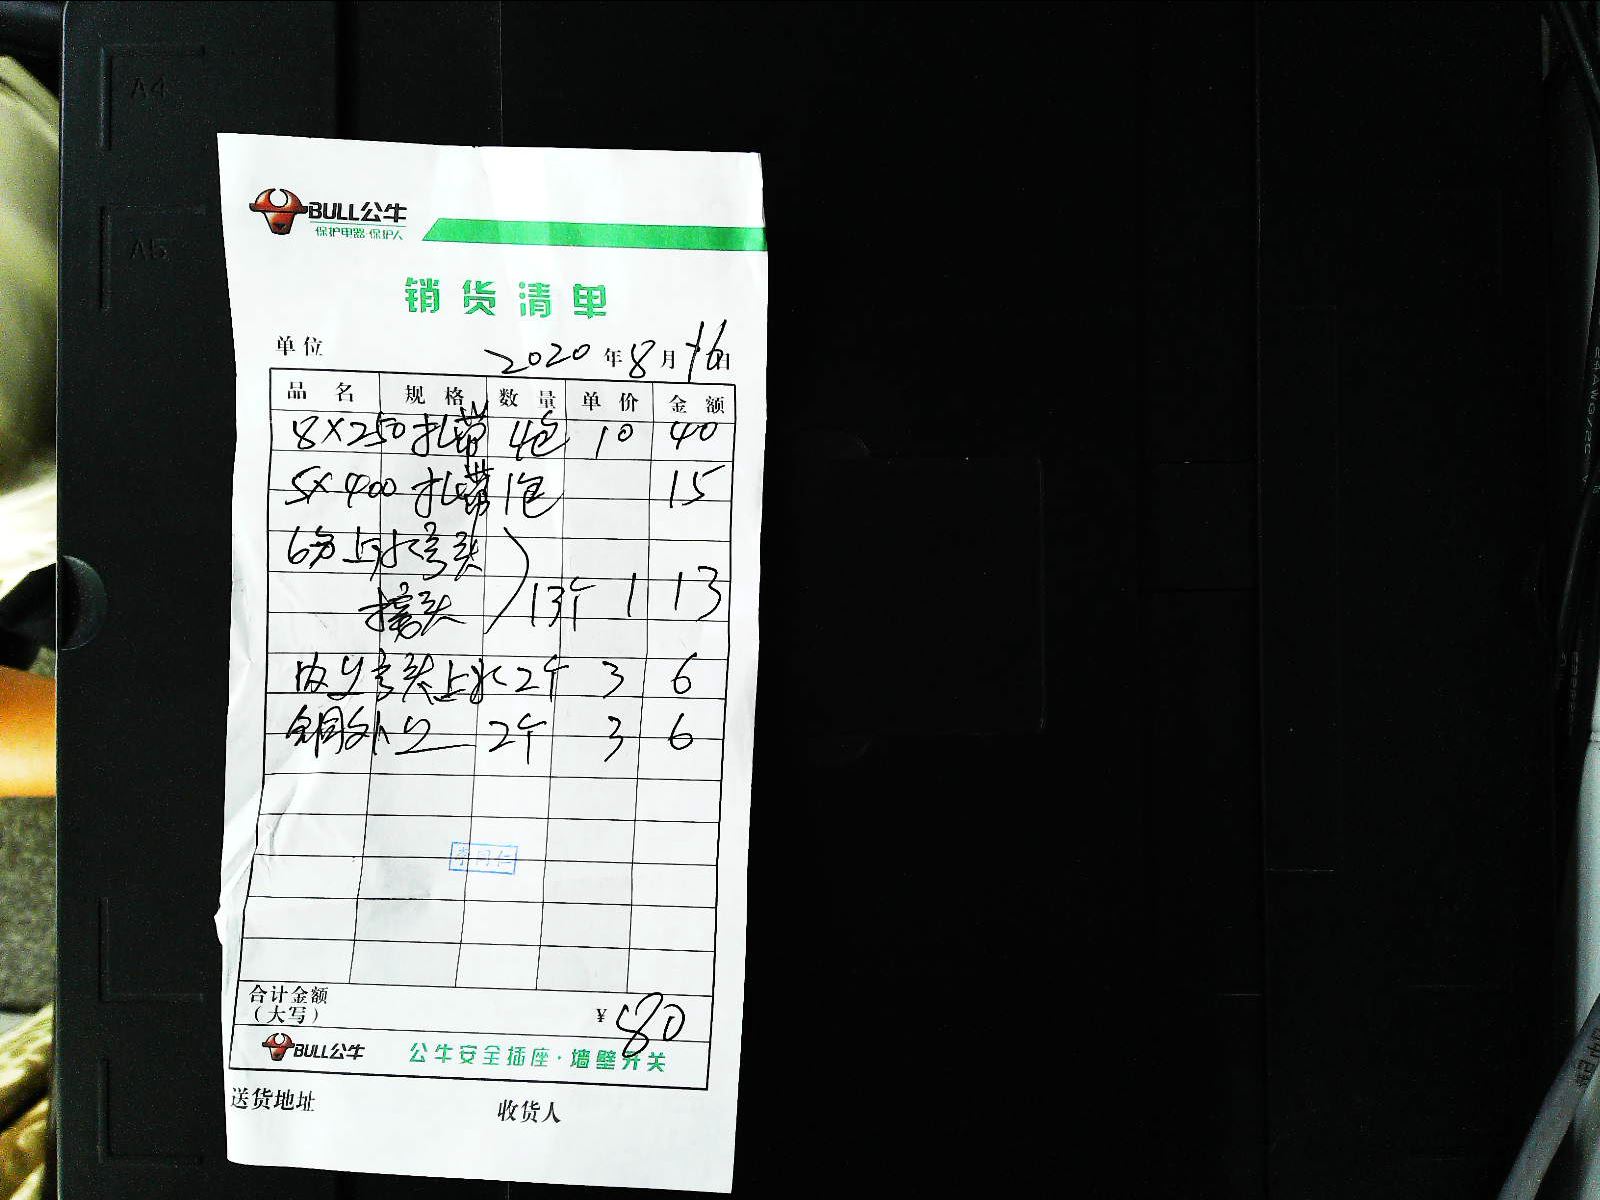 A4
A5
BULL公牛
保护电器·保护人
销货清单
单位 2020年8月16日
品名 规格 数量 单价 金额
8×250扎带 4包 10 40
5×400扎带 1包 15
6分上水弯头
接头 13个 1 13
内丝弯头上水 2个 3 6
铜外丝 2个 3 6
合计金额
(大写) ¥80
BULL公牛 公牛安全插座·墙壁开关
送货地址 收货人